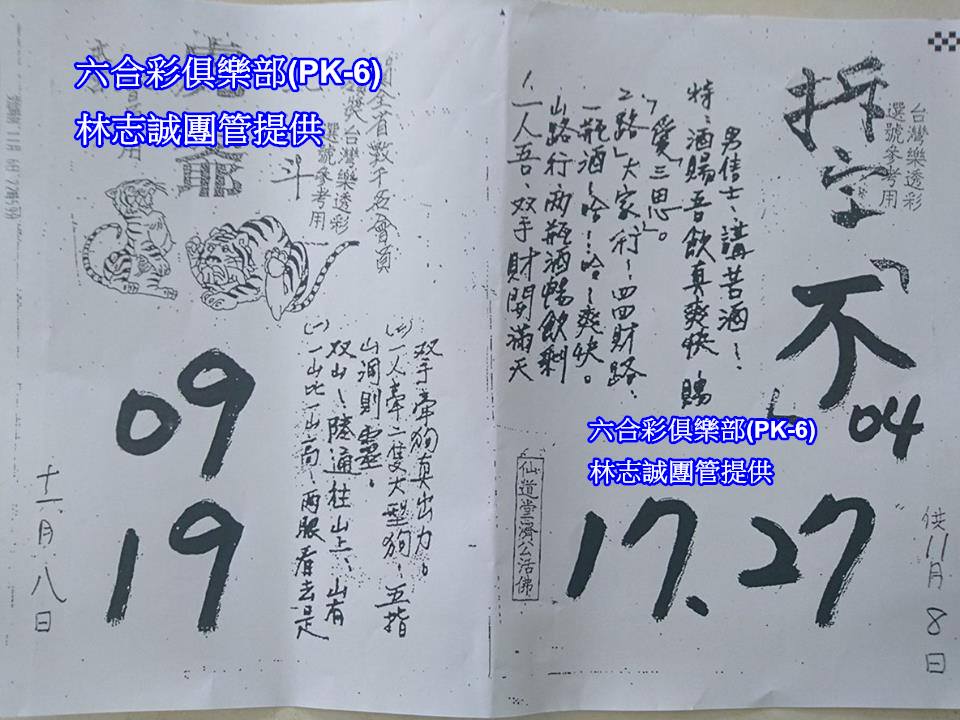 六合彩俱樂部(PK-6)
林志誠團管提供
拆字
台灣樂透彩
選號參考用
不
04
17、27
供11月8日
男信士、講苦酒~
特:酒賜吾飲真爽快 賜
「愛」三思」。
2路」大家行~四四財路、
一瓶酒~哈~!哈~爽快。
山路行兩瓶酒暢飲剩
1、一人吾、双手財開滿天
仙道堂濟公活佛
六合彩俱樂部(PK-6)
林志誠團管提供
全省數千名會員
台灣樂透彩
選號參考用
斗
虎爺
09
19
双手牽狗真出力。
(二)一人牽二隻大型狗、五指
山洞則靈。
双山~陸通柱山上、山有
(一)一山比一山高、兩眼看去是
十一月八日